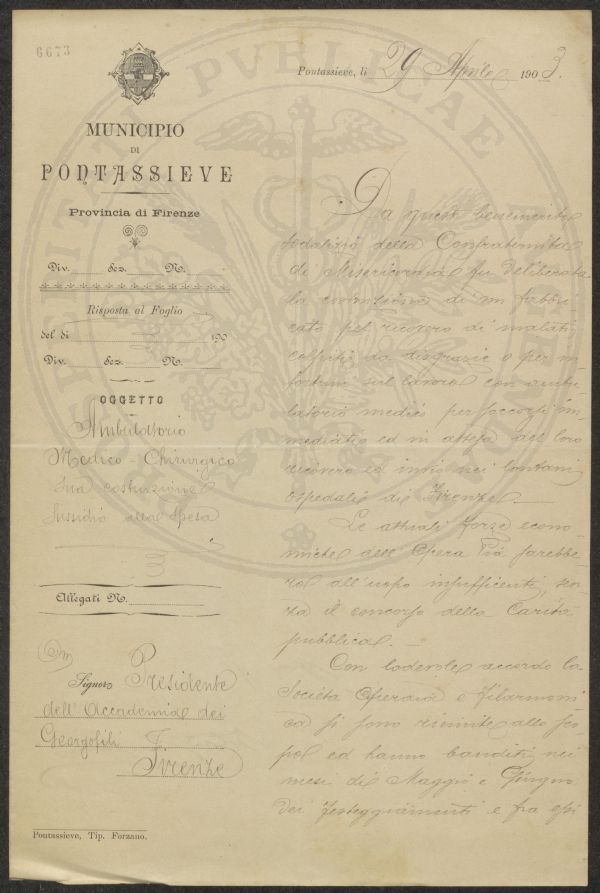 6673
Pontassieve, li 29 Aprile 1903.
MUNICIPIO
DI
PONTASSIEVE
Provincia di Firenze
Div. Sez. N.
Risposta al Foglio
del dì 190
Div. Sez. N.
OGGETTO
Ambulatorio
Medico-Chirurgico
Sua costruzione
Sussidio alla spesa
Allegati N.
Signor Presidente
dell'Accademia dei
Georgofili
Firenze
Pontassieve, Tip. Forzano.
Da questo benemerito
sodalizio della Confraternita
di Misericordia fu deliberata
la costruzione di un fabbri
cato pel ricovero di malati
colpiti da disgrazie o per in
fortuni sul lavoro con ambu
latorio medico per soccorsi im
mediati ed in attesa del loro
ricovero ed invio nei lontani
ospedali di Firenze.
Le attuali forze econo
miche dell'Opera Pia sarebbe
ro all'uopo insufficienti, sen
za il concorso della Carità
pubblica.
Con lodevole accordo la
Società Operaia e Filarmoni
ca si sono riunite allo sco
po ed hanno banditi nei
mesi di Maggio e Giugno
dei festeggiamenti e fra essi